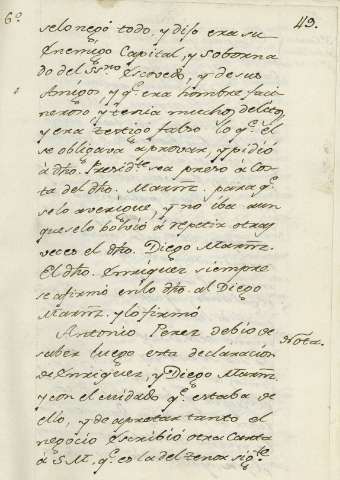 6º
49.
selo negó todo, y dijo era su
Enemigo Capital, y Soborna
do del Ssrio Escovedo, y de sus
Amigos y q.e era hombre faci
neroso y tenia muchos delitos,
y era testigo falso lo q.e él
se obligava á provar, y pidió
á dho. Presid.te sea preso á Cos
ta del dho. Marrnz. para q.e
selo averigüe, y no iba aun
que selo bolvió á repetir otras
veces el dho. Diego Marrnz.
El dho. Enriquez siempre
se afirmó en lo dho. al Diego
Marrnz. y lo firmó
Antonio Perez debió de
saber luego esta declaración
de Enriquez, y Diego Marrnz.
y con el cuidado q.e estaba de
ello, y de apretar tanto el
negocio Escribió otra Carta
á S.M., q.e es la del tenor sig.te
Nota.